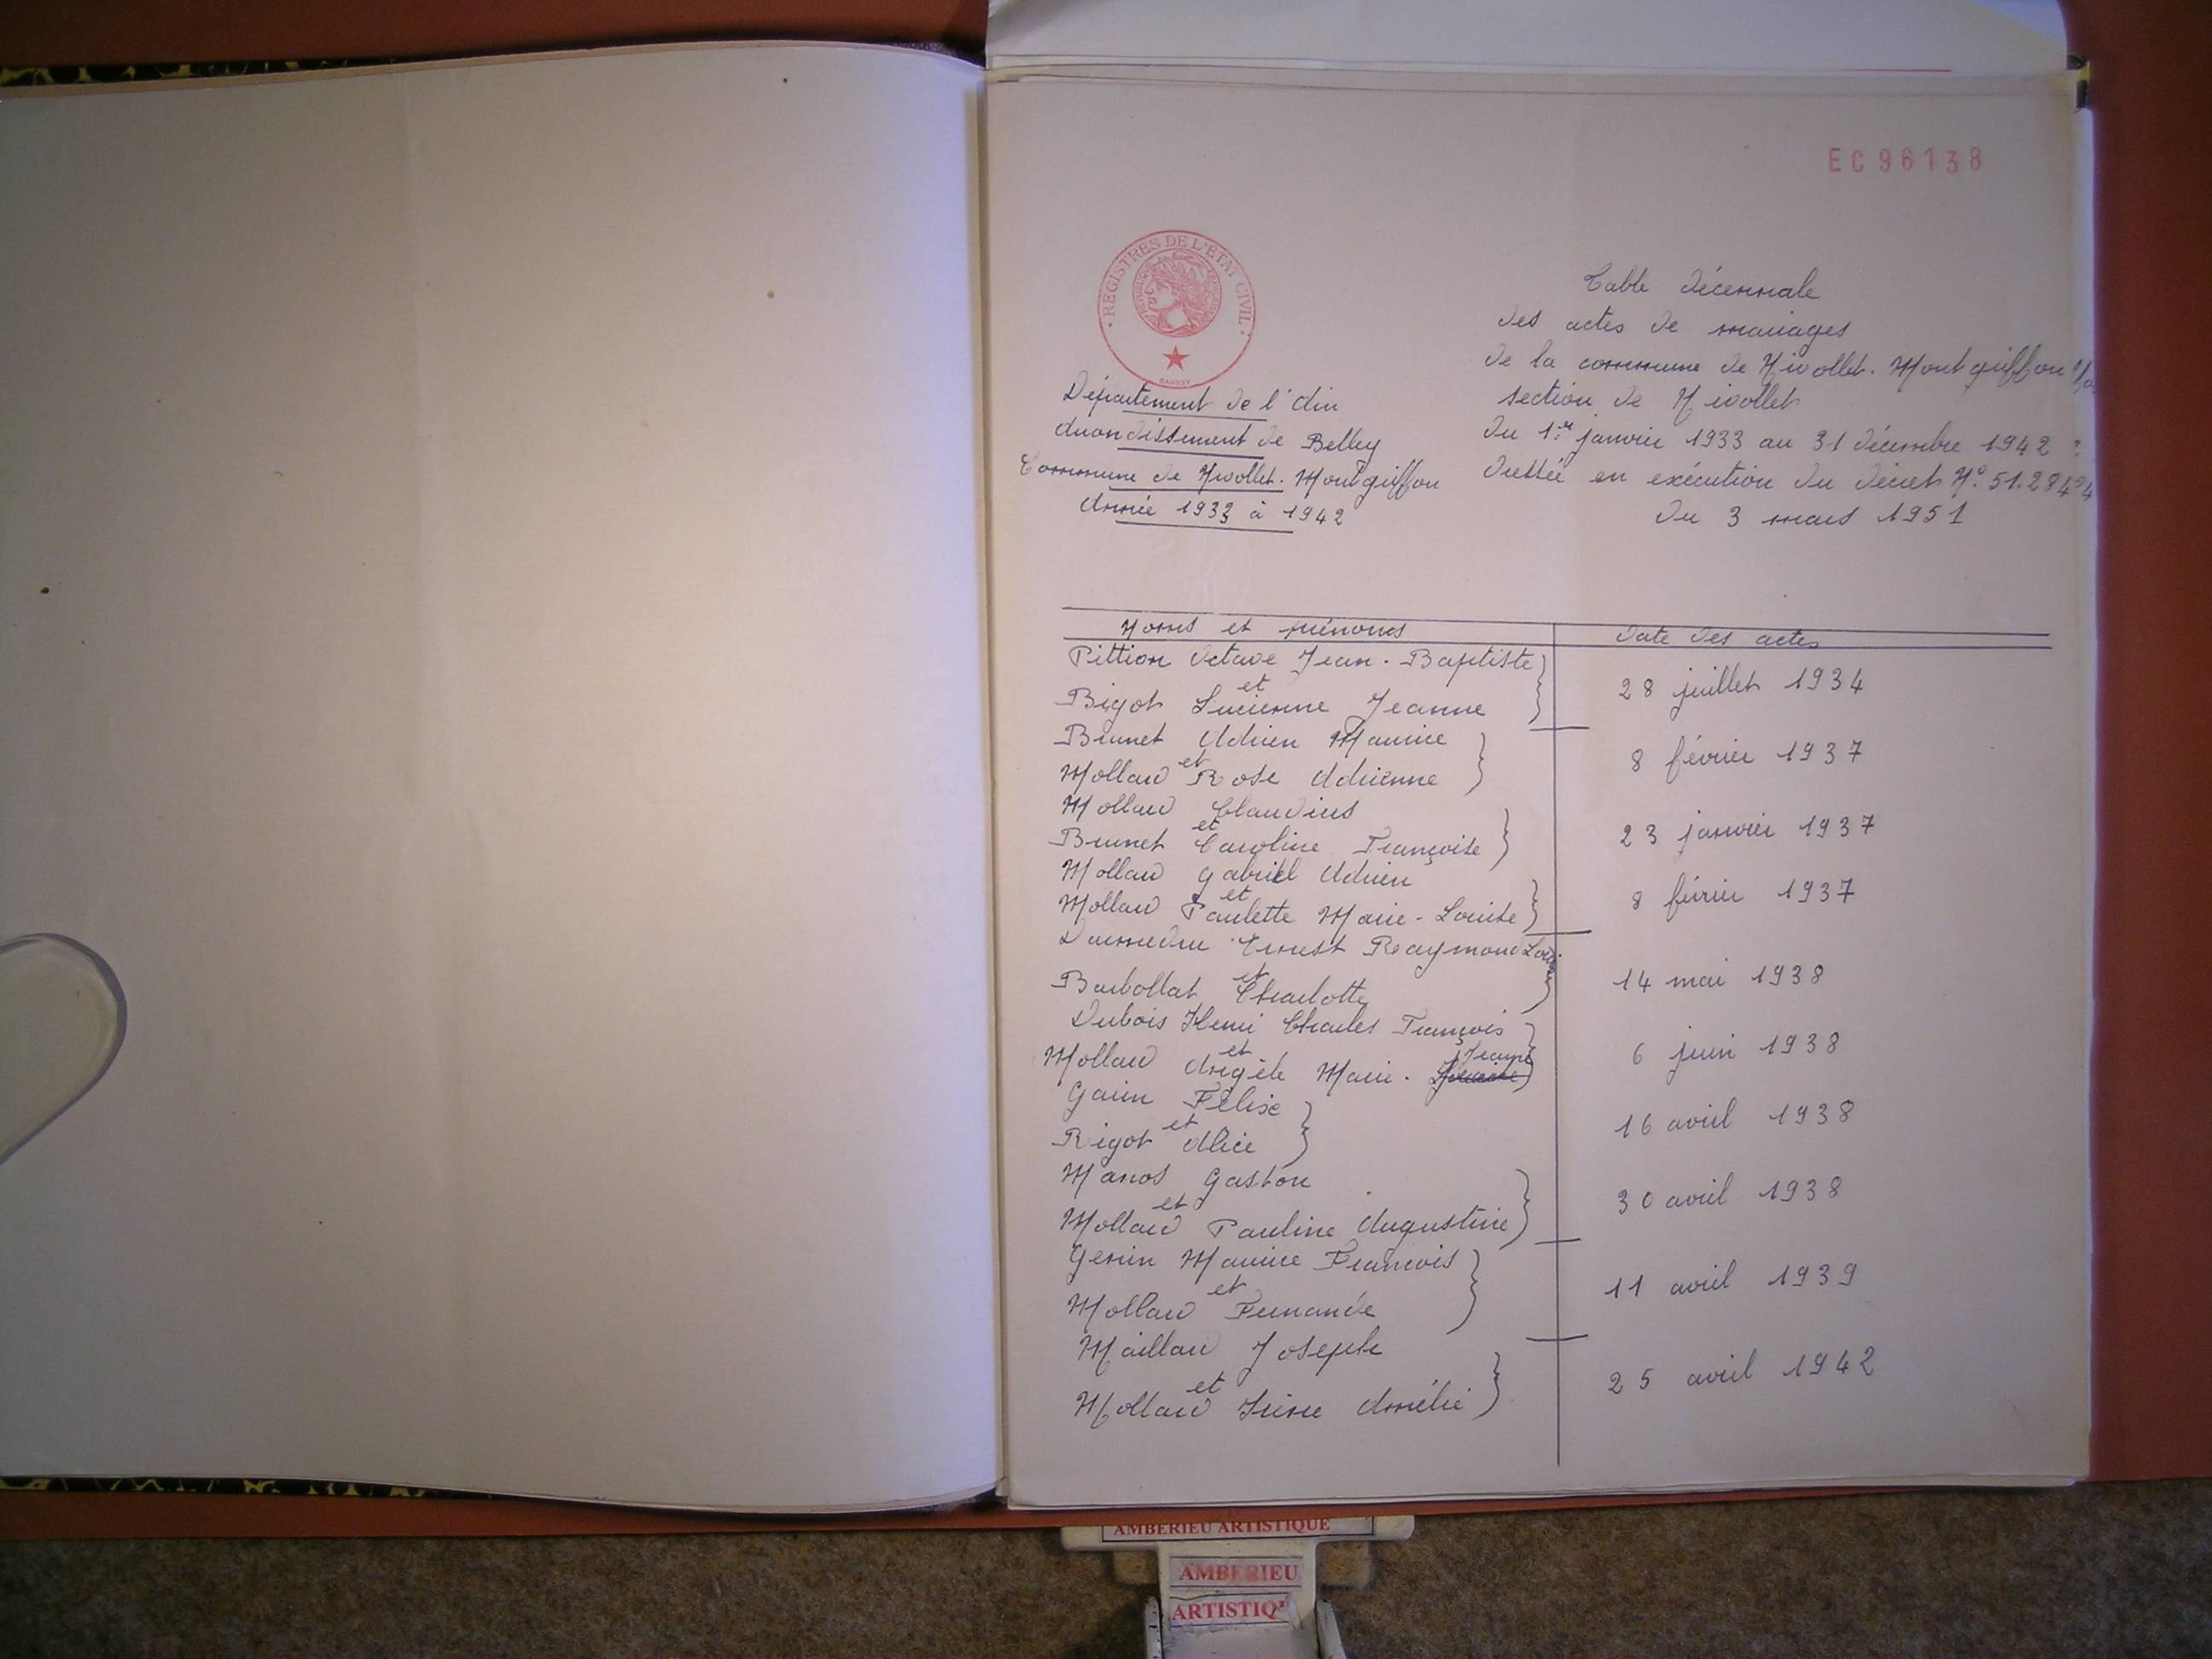 EC96138
REGISTRES DE L'ETAT CIVIL
Table décennale
des actes de mariages
de la commune de Nivollet. Montgriffon
section de Nivollet
du 1er janvier 1933 au 31 décembre 1942
dressée en exécution du décret N° 51.284
du 3 mars 1951
Département de l'Ain
Arrondissement de Belley
Commune de Nivollet. Montgriffon
Année 1933 à 1942
Noms et prénoms
Date des actes
Pittion Octave Jean. Baptiste
et
28 juillet 1934
Bigot Lucienne Jeanne
Brunet Adrien Maurice
et
8 février 1937
Mollard Rose Adrienne
Mollard Claudius
et
23 janvier 1937
Brunet Caroline Françoise
Mollard Gabriel Adrien
et
8 février 1937
Mollard Paulette Marie-Louise
Ernest Raymond Louis
et
14 mai 1938
Barbollat Charlotte
Dubois Henri Charles François
et
6 juin 1938
Mollard Angèle Marie. Jeanne
Garin Félix
et
16 avril 1938
Rigot Alice
Manos Gaston
et
30 avril 1938
Mollard Pauline Augustine
Genin Maurice François
et
11 avril 1939
Mollard Fernande
Maillard Joseph
et
25 avril 1942
Mollard Irène Amélie
AMBERIEU ARTISTIQUE
AMBERIEU
ARTISTIQ